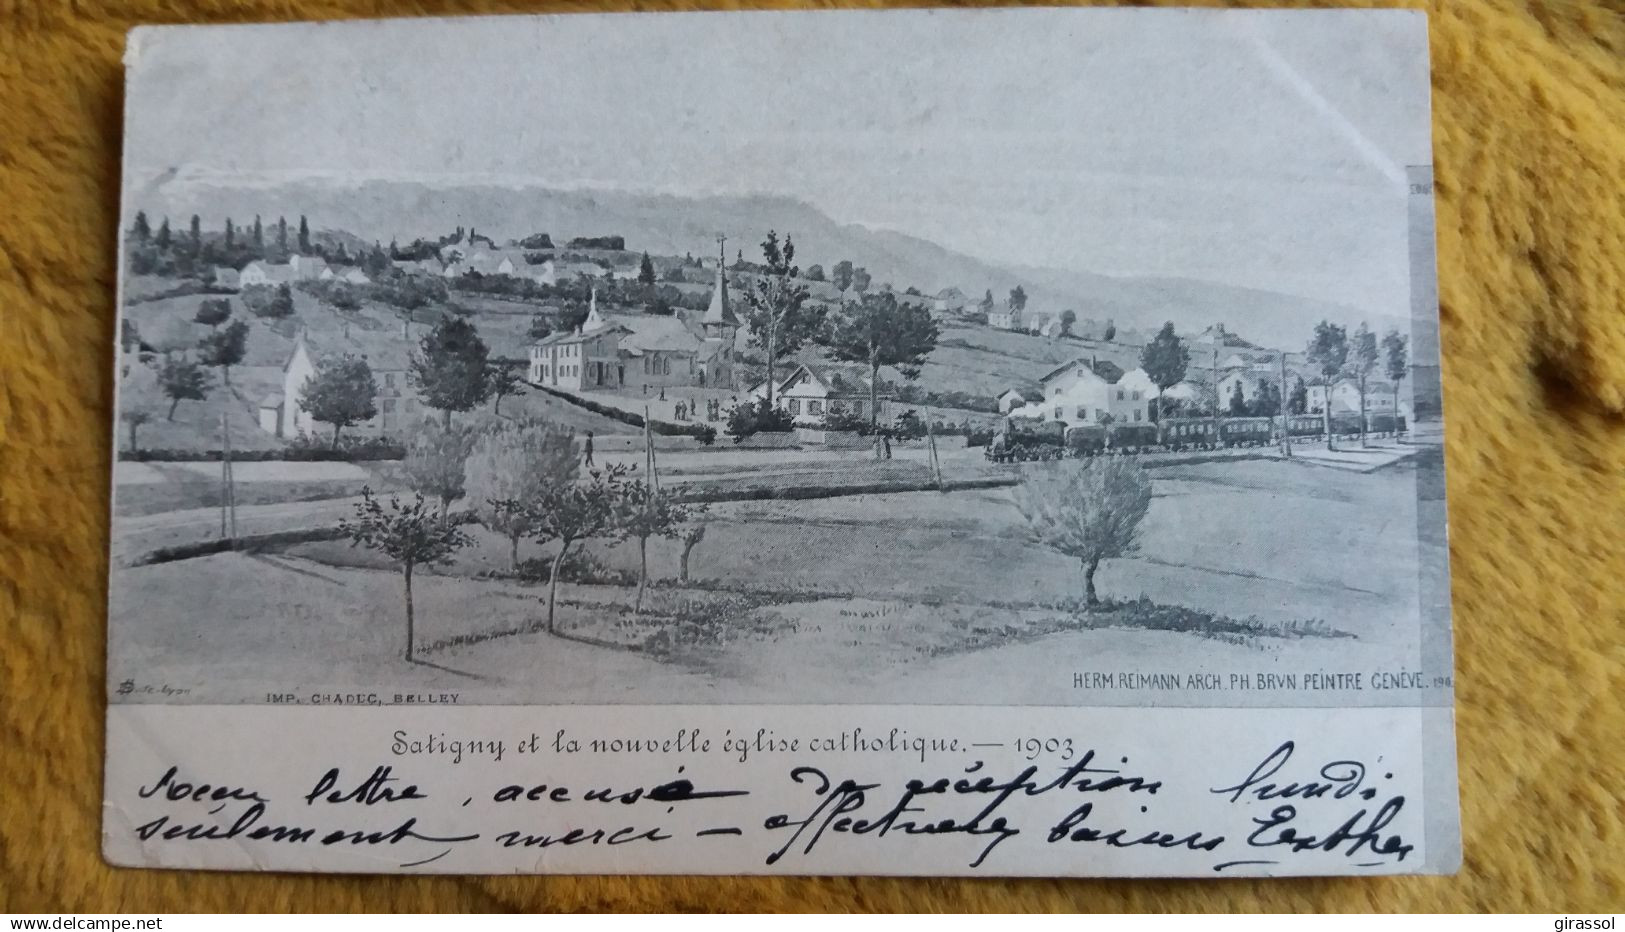 HERM. REIMANN. ARCH. PH. BRVN. PEINTRE GENÈVE. 190
IMP. CHADUC, BELLEY
Satigny et la nouvelle église catholique. — 1903
recu lettre, accusé de réception lundi
seulement merci — affectueux baisers Esther
© www.delcampe.net
girassol